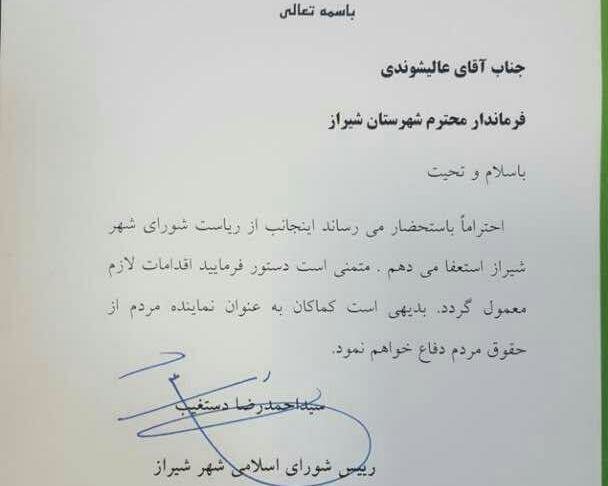 باسمه تعالی
جناب آقای عالیشوندی
فرماندار محترم شهرستان شیراز
باسلام و تحیت
احتراماً باستحضار می رساند اینجانب از ریاست شورای شهر
شیراز استعفا می دهم . متمنی است دستور فرمایید اقدامات لازم
معمول گردد. بدیهی است کماکان به عنوان نماینده مردم از
حقوق مردم دفاع خواهم نمود.
سیداحمدرضا دستغیب
رییس شورای اسلامی شهر شیراز